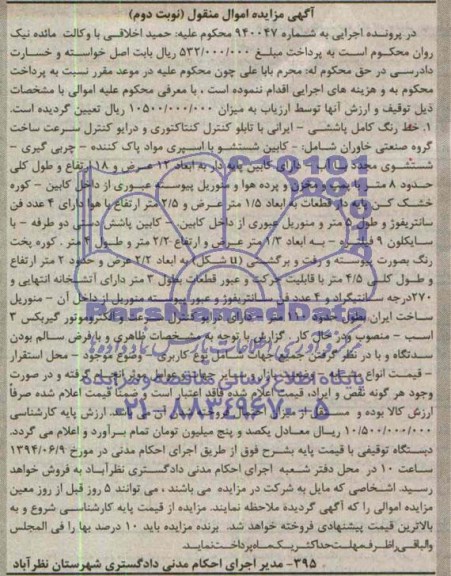 آگهی مزایده اموال منقول (نوبت دوم)
در پرونده اجرایی به شماره ۹۴۰۰۴۷ محکوم علیه: حمید اخلاقی با وکالت مائده نیک
روان محکوم است به پرداخت مبلغ ۵۳۲/۰۰۰/۰۰۰ ریال بابت اصل خواسته و خسارت
دادرسی در حق محکوم له: محرم بابا علی چون محکوم علیه در موعد مقرر نسبت به پرداخت
محکوم به و هزینه های اجرایی اقدام ننموده است ، با معرفی محکوم علیه اموالی با مشخصات
ذیل توقیف و ارزش آنها توسط ارزیاب به میزان ۱۰۵۰۰/۰۰۰/۰۰۰ ریال تعیین گردیده است.
۱. خط رنگ کامل پاششی - ایرانی با تابلو کنترل کنتاکتوری و درایو کنترل سرعت ساخت
گروه صنعتی خاوران شامل: - کابین شستشو با اسپری مواد پاک کننده - چربی گیری -
شستشوی مجدد با آب - دارای کابین پایه دار به ابعاد ۱۲ عرض و ۱۸ ارتفاع و طول کلی
حدود ۸ متر با پمپ و مخزن و پرده هوا و منوریل پیوسته عبوری از داخل کابین - کوره
خشک کن پایه دار قطعات به ابعاد ۱/۵ متر عرض و ۲/۵ متر ارتفاع با هوا دارای ۴ عدد فن
سانتریفوژ و طول ۵ متر و منوریل عبوری از داخل کابین - کابین پاشش دستی دو طرفه - با
سایکلون ۹ فیلتره - به ابعاد ۱/۲ متر عرض و ارتفاع ۲/۲ متر و طول ۴ متر . کوره پخت
رنگ بصورت پیوسته و رفت و برگشتی (u شکل) به ابعاد ۲/۲ عرض و حدود ۲ متر ارتفاع
و طول کلی ۴/۵ متر با قابلیت حرکت و عبور قطعات بطول ۳ متر دارای آتشخانه انتهایی و
۲۷۰درجه سانتیگراد و ۴ عدد فن سانتریفوژ و عبور پیوسته منوریل از داخل آن - منوریل
ساخت ایران بطول حدود متر دارای درایو کنترل سرعت و الکتروموتور گیربکس ۳
اسب - منصوب و در حال کار . گزارش با توجه به مشخصات ظاهری و با فرض سالم بودن
دستگاه و با در نظر گرفتن جمیع جهات شامل نوع کاربری - وضوع موجود - محل استقرار
- قیمت انواع مشابه - وضعیت بازار و سایر جهات و عوامل موثر انجام گرفته و در صورت
وجود هر گونه نقص و ایراد، قیمت اعلام شده فاقد اعتبار است و ضمنا قیمت اعلام شده صرفاً
ارزش کالا بوده و مستقل از ارزش پایه کارشناسی
۱۰/۵۰۰/۰۰۰/۰۰۰ ریال معادل یکصد و پنج میلیون تومان تمام برآورد و اعلام می گردد.
دستگاه توقیفی با قیمت پایه بشرح فوق از طریق اجرای احکام مدنی در مورخ ۱۳۹۴/۰۶/۹
ساعت ۱۰ در محل دفتر شعبه اجرای احکام مدنی دادگستری نظرآباد به فروش خواهد
رسید. اشخاصی که مایل به شرکت در مزایده می باشند ، می توانند ۵ روز قبل از روز معین
مزایده اموالی را که آگهی گردیده ملاحظه نمایند. مزایده از قیمت پایه کارشناسی شروع و به
بالاترین قیمت پیشنهادی فروخته خواهد شد. برنده مزایده باید ۱۰ درصد بها را فی المجلس
والباقی را ظرف مهلت حداکثر یک ماه پرداخت نماید.
۳۹۵- مدیر اجرای احکام مدنی دادگستری شهرستان نظرآباد
ParsNamadData
پایگاه اطلاع رسانی مناقصه و مزایده
۰۲۱-۸۸۳۴۹۶۷۰-۵